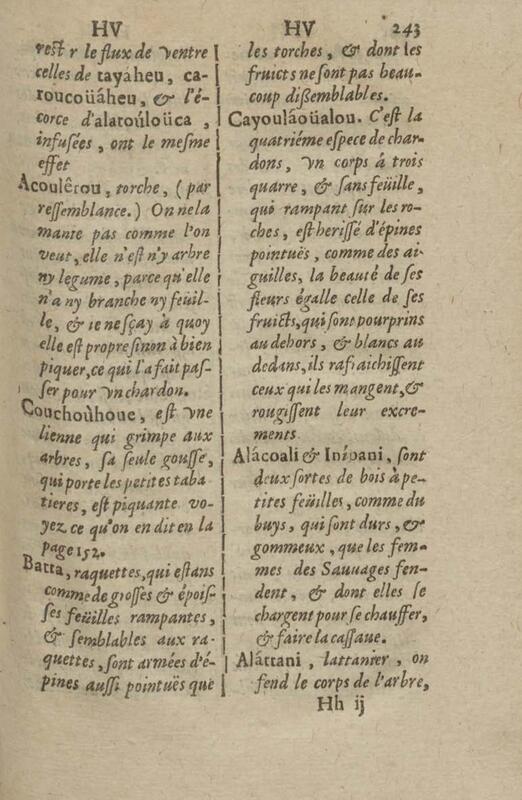 HV
HV
243
rest r le flux de ventre
celles de tayáheu, ca-
roucoüáheu, & l'é-
corce d'alatoúloüca,
infusées, ont le mesme
effet
Acoulêrou, torche, (par
ressemblance.) On ne la
mante pas comme l'on
veut, elle n'est n'y arbre
ny legume, parce qu'elle
n'a ny branche ny feüil-
le, & ie nesçay à quoy
elle est propre sinon à bien
piquer, ce qui l'a fait pas-
ser pour vn chardon.
Couchoùhoue, est vne
lienne qui grimpe aux
arbres, sa seule gousse,
qui porte les petites taba
tieres, est piquante vo-
yez ce qu'on en dit en la
page 152.
Batta, raquettes, qui estans
comme de grosses & épois-
ses feüilles rampantes,
& semblables aux ra-
quettes, sont armées d'é-
pines aussi pointuës que
les torches, & dont les
fruicts ne sont pas beau-
coup dißemblables.
Cayouláoüalou. C'est la
quatriéme espece de char-
dons, vn corps à trois
quarre, & sans feüille,
qui rampant sur les ro-
ches, est herissé d'épines
pointuës, comme des ai-
guilles, la beauté de ses
fleurs égalle celle de ses
fruicts, qui sont pourprins
au dehors, & blancs au
dedans, ils rafraichissent
ceux qui les mangent, &
rougissent leur excre-
ments
Alácoali & Inípani, sont
deux sortes de bois à pe-
tites feüilles, comme du
buys, qui sont durs, &
gommeux, que les fem-
mes des Sauuages fen-
dent, & dont elles se
chargent pour se chauffer,
& faire la cassaue.
Aláttani, lattanier, on
fend le corps de l'arbre,
Hh ij